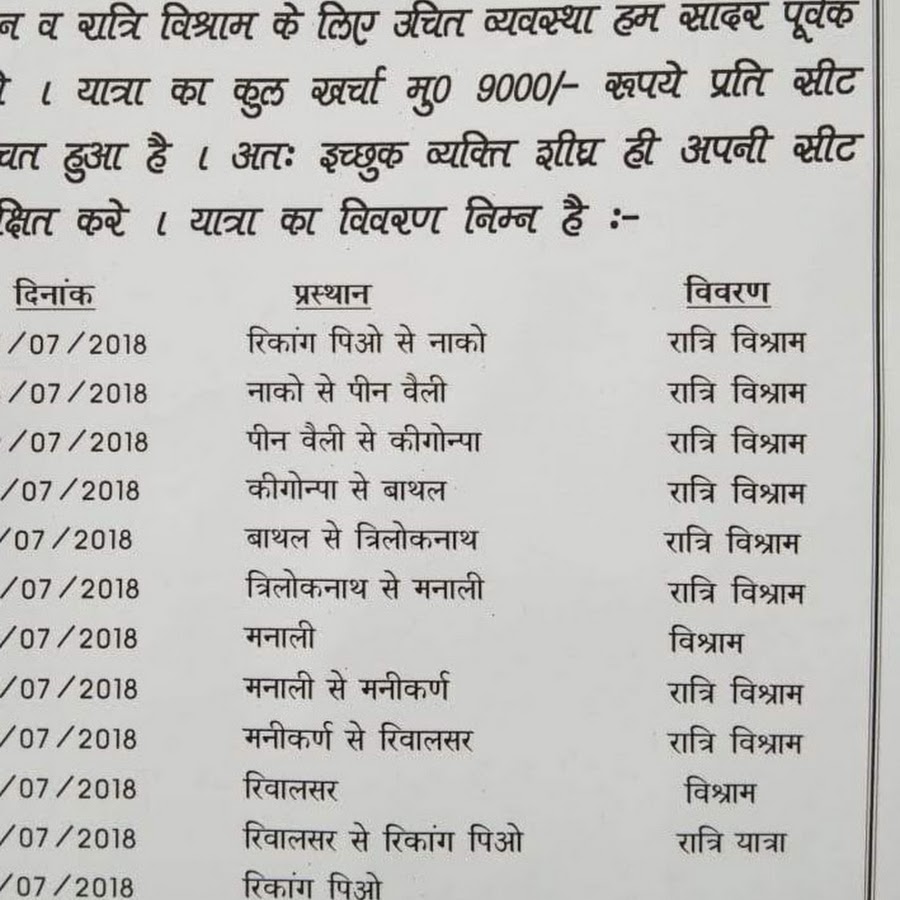 व रात्रि विश्राम के लिए उचित व्यवस्था हम सादर पूर्वक
। यात्रा का कुल खर्चा मु0 9000/- रूपये प्रति सीट
हुआ है । अतः इच्छुक व्यक्ति शीघ्र ही अपनी सीट
करे । यात्रा का विवरण निम्न है :-
दिनांक प्रस्थान विवरण
/07/2018 रिकांग पिओ से नाको रात्रि विश्राम
/07/2018 नाको से पीन वैली रात्रि विश्राम
/07/2018 पीन वैली से कीगोन्पा रात्रि विश्राम
/07/2018 कीगोन्पा से बाथल रात्रि विश्राम
/07/2018 बाथल से त्रिलोकनाथ रात्रि विश्राम
/07/2018 त्रिलोकनाथ से मनाली रात्रि विश्राम
/07/2018 मनाली विश्राम
/07/2018 मनाली से मनीकर्ण रात्रि विश्राम
/07/2018 मनीकर्ण से रिवालसर रात्रि विश्राम
/07/2018 रिवालसर विश्राम
/07/2018 रिवालसर से रिकांग पिओ रात्रि यात्रा
/07/2018 रिकांग पिओ